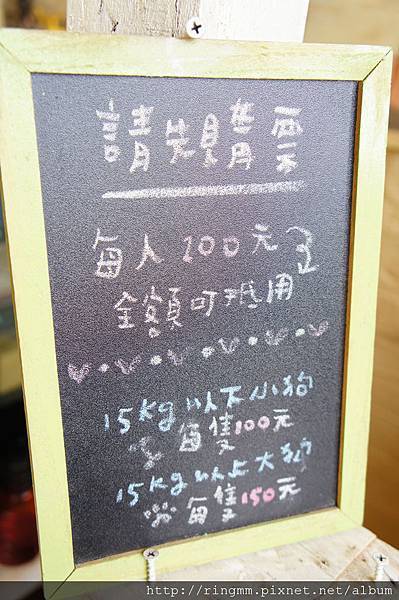 請先購票
每人200元
全額可抵用
15kg以下小狗
每隻100元
15kg以上大狗
每隻150元
http://ringmm.pixnet.net/album